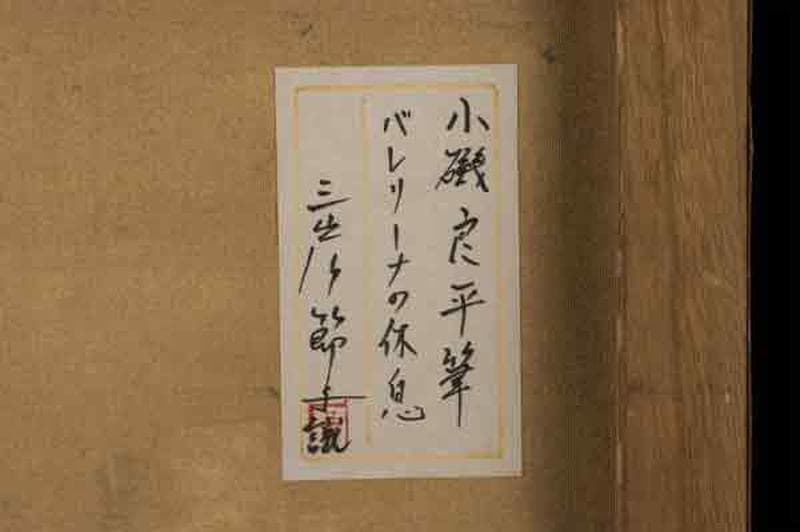 小磯良平筆
バレリーナの休息
三岸節子識